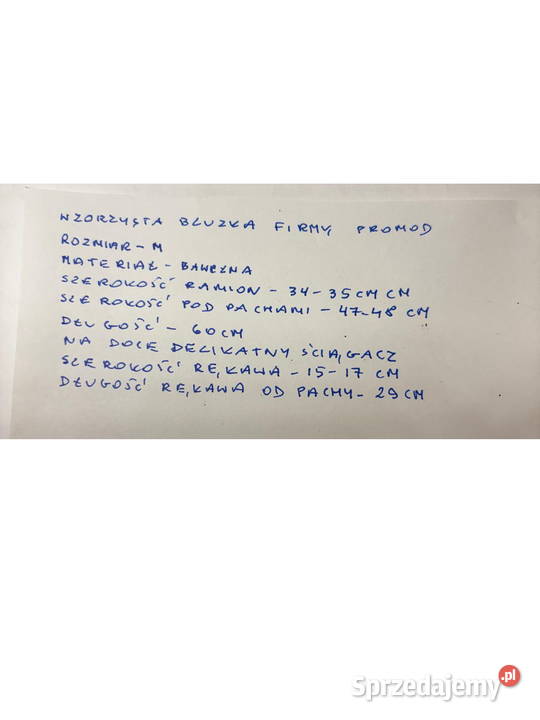 WZORZYSTA BLUZKA FIRMY PROMOD
ROZMIAR - M
MATERIAŁ - BAWEŁNA
SZEROKOŚĆ RAMION - 34-35 CM CM
SZEROKOŚĆ POD PACHAMI - 47-48 CM
DŁUGOŚĆ - 60 CM
NA DOLE DELIKATNY ŚCIĄGACZ
SZEROKOŚĆ RĘKAWA - 15-17 CM
DŁUGOŚĆ RĘKAWA OD PACHY - 29 CM
Sprzedajemy.pl